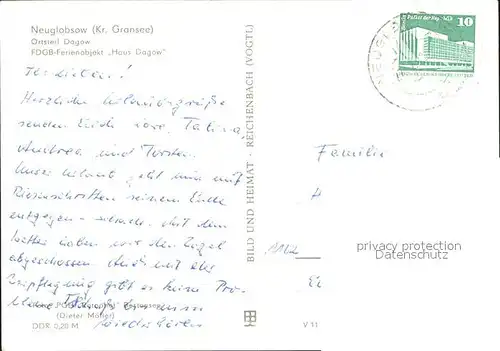 Neuglobsow (Kr. Gransee)
Ortsteil Dagow
FDGB-Ferienobjekt „Haus Dagow"
Ihr Lieben!
Herzliche Urlaubsgrüße
senden Euch Tatjana,
Andrea und Torsten.
Unser Urlaub geht nun mit
Riesenschritten seinem Ende
entgegen – schade. Mit dem
Wetter haben wir den Vogel
abgeschossen. Auch mit der
Verpflegung gibt es keine Pro-
bleme.
(Dieter Möller)
DDR 0,20 M
BILD UND HEIMAT · REICHENBACH (VOGTL)
V 11
10
Familie
privacy protection
Datenschutz